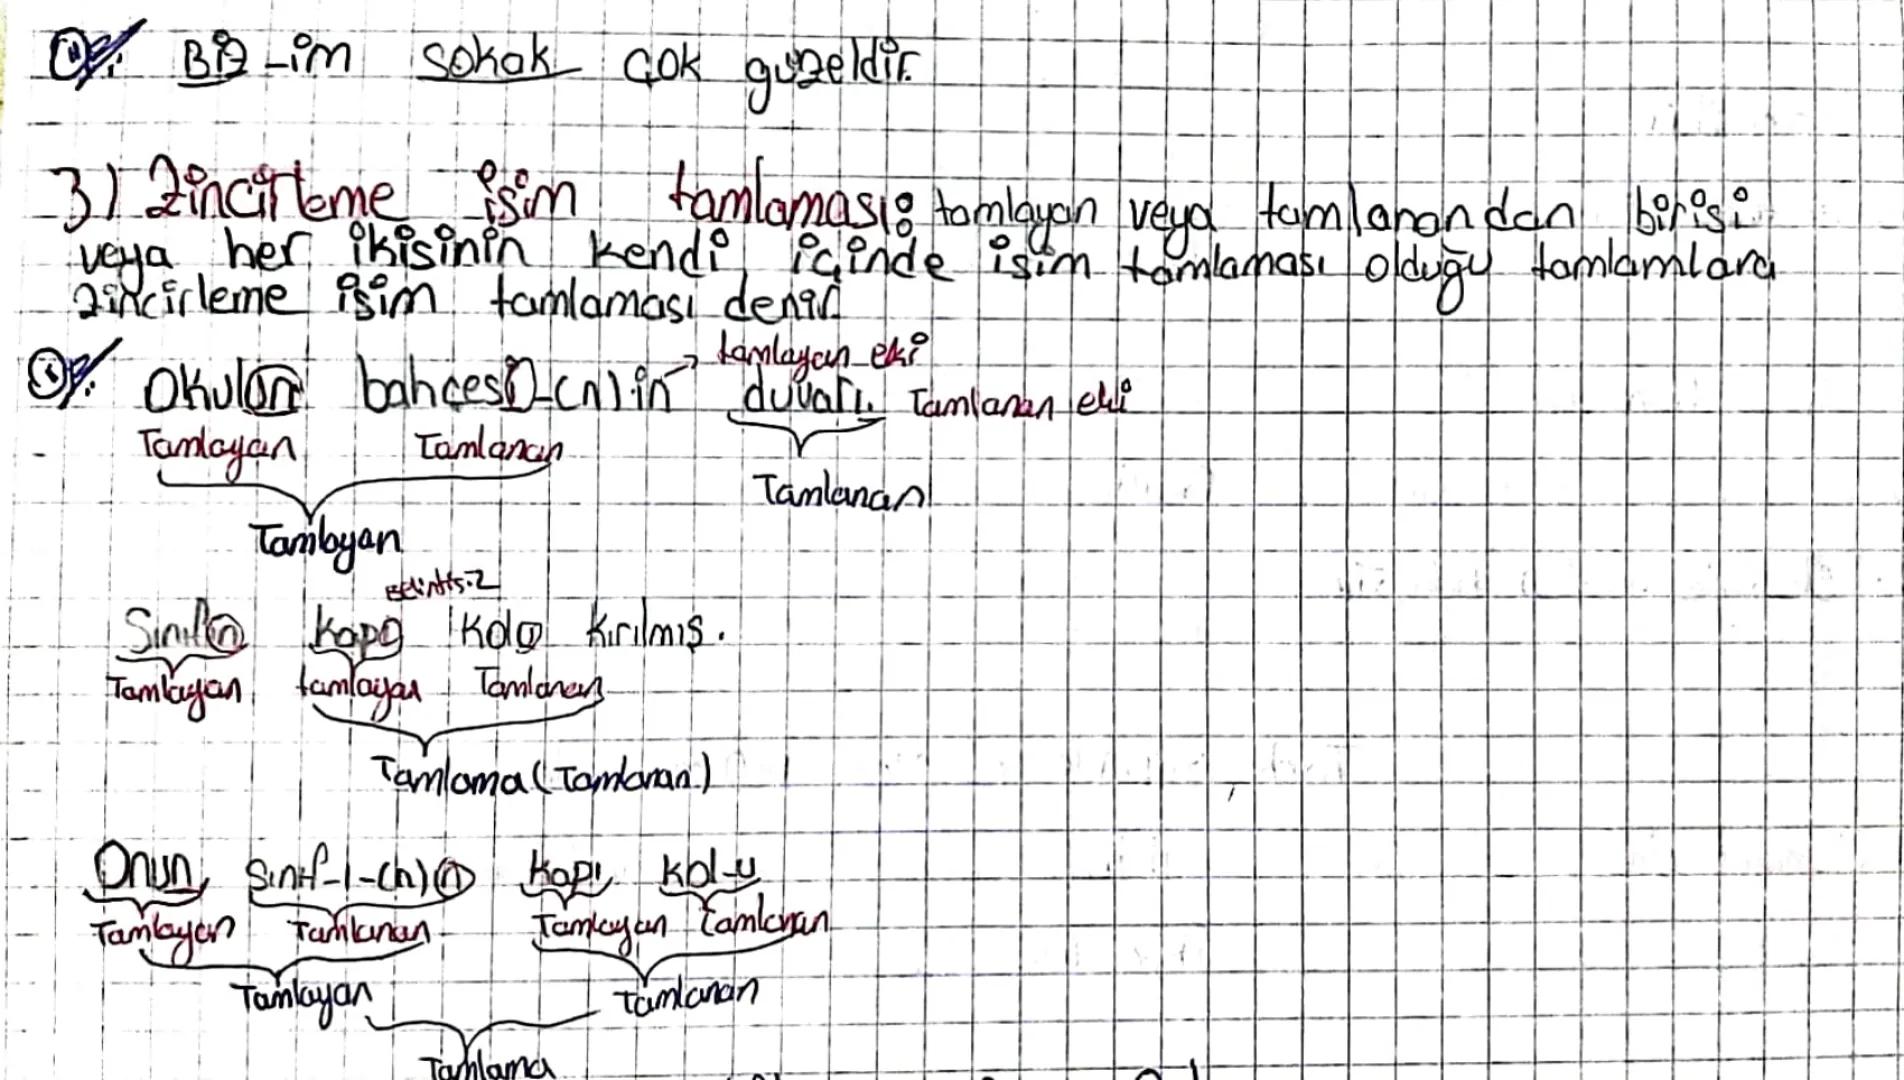 Ör/: Biz-im sokak çok güzeldir.
3) Zincirleme isim tamlaması: tamlayan veya tamlanandan birisi
veya her ikisinin kendi içinde isim tamlaması olduğu tamlamlara
zincirleme isim tamlaması denir.
tamlayan eki
Ör/: Okulun bahçesi-(n)-in → duvarı. Tamlanan eki
Tamlayan Tamlanan
Tamlanan
Tamlayan
Belirtis.z
Sınıfın kapı kolu kırılmış.
Tamlayan tamlayan Tamlanan
Tamlama (Tamlanan)
Onun Sınıf-ı-(n)ın kapı kol-u
Tamlayan Tamlanan Tamlayan tamlanan
Tamlayan tamlanan
Tamlama